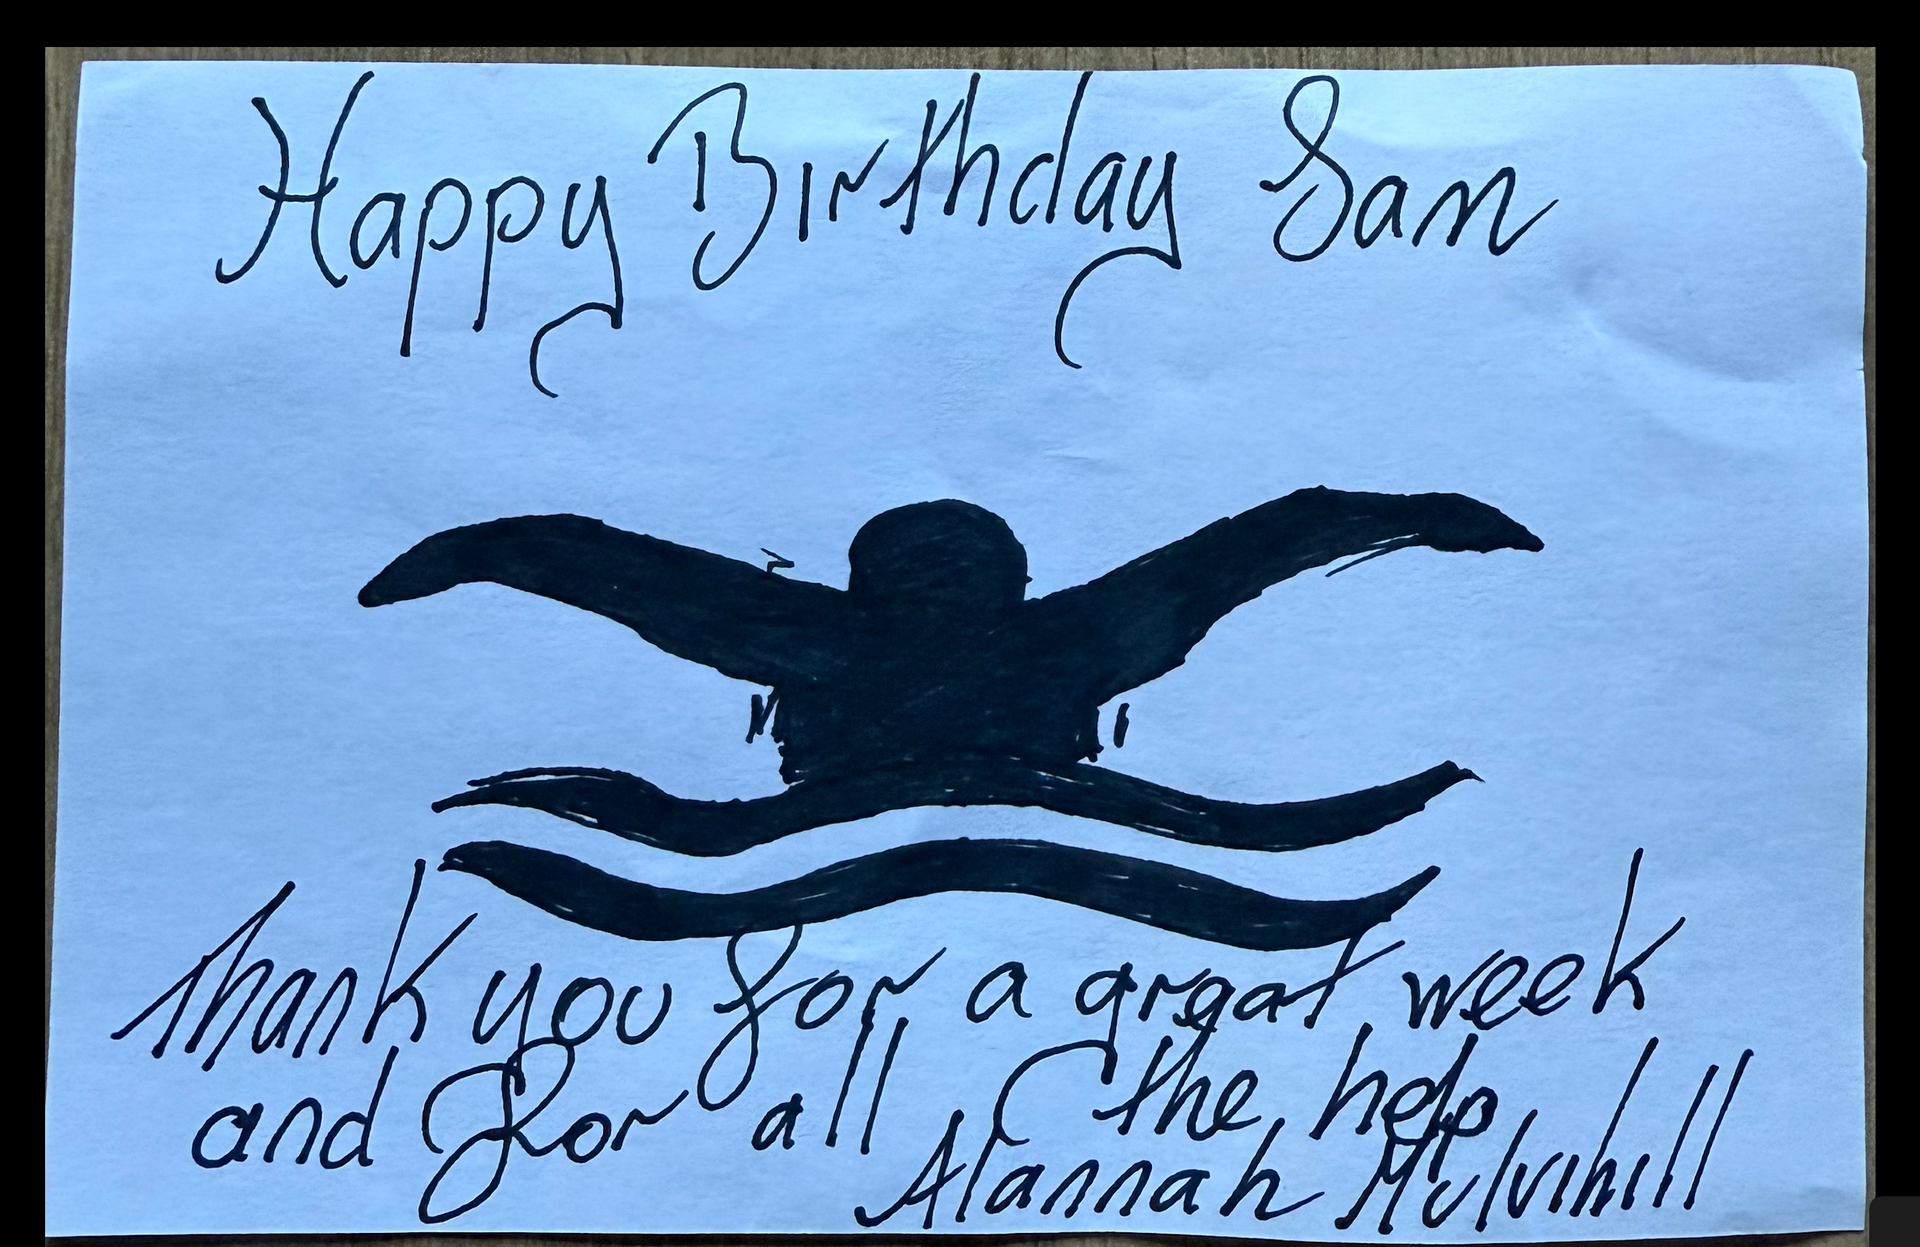 Happy Birthday San
Thank you for a great week
and for all the help
Alannah Mulvihill